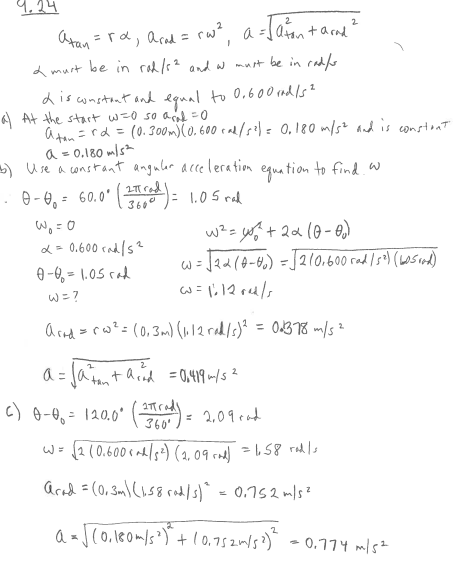 9.24
a_tan = r α, a_rad = rω², a = √(a²_tan + a_rad²)
α must be in rad/s² and ω must be in rad/s
α is constant and equal to 0.600 rad/s²
a) At the start ω=0 so a_rad = 0
a_tan = rα = (0.300m)(0.600 rad/s²) = 0.180 m/s² and is constant
a = 0.180 m/s²
b) Use a constant angular acceleration equation to find ω
θ-θ₀ = 60.0° (2π rad/360°) = 1.05 rad
ω₀ = 0
ω² = ω₀² + 2α (θ-θ₀)
α = 0.600 rad/s²
ω = √(2α(θ-θ₀)) = √(2(0.600 rad/s²)(1.05 rad))
θ-θ₀ = 1.05 rad
ω = 1.12 rad/s
ω = ?
a_rad = rω² = (0.3m)(1.12 rad/s)² = 0.378 m/s²
a = √(a²_tan + a²_rad) = 0.419 m/s²
c) θ-θ₀ = 120.0° (2π rad/360°) = 2.09 rad
ω = √(2(0.600 rad/s²)(2.09 rad)) = 1.58 rad/s
a_rad = (0.3m)(1.58 rad/s)² = 0.752 m/s²
a = √((0.180m/s²)² + (0.752m/s²)²) = 0.774 m/s²